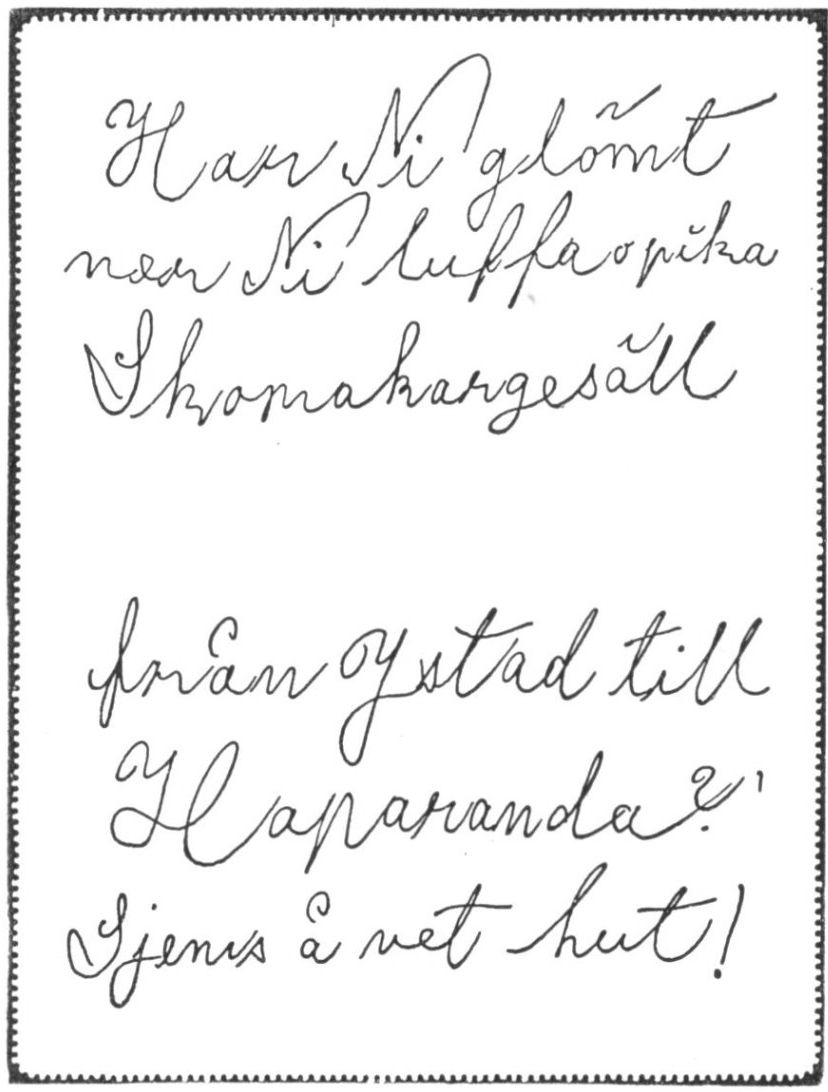 Har Ni glömt
når Ni luffa o pika
Skomakargesäll
från Ystad till
Haparanda?
Sjems å vet hut!